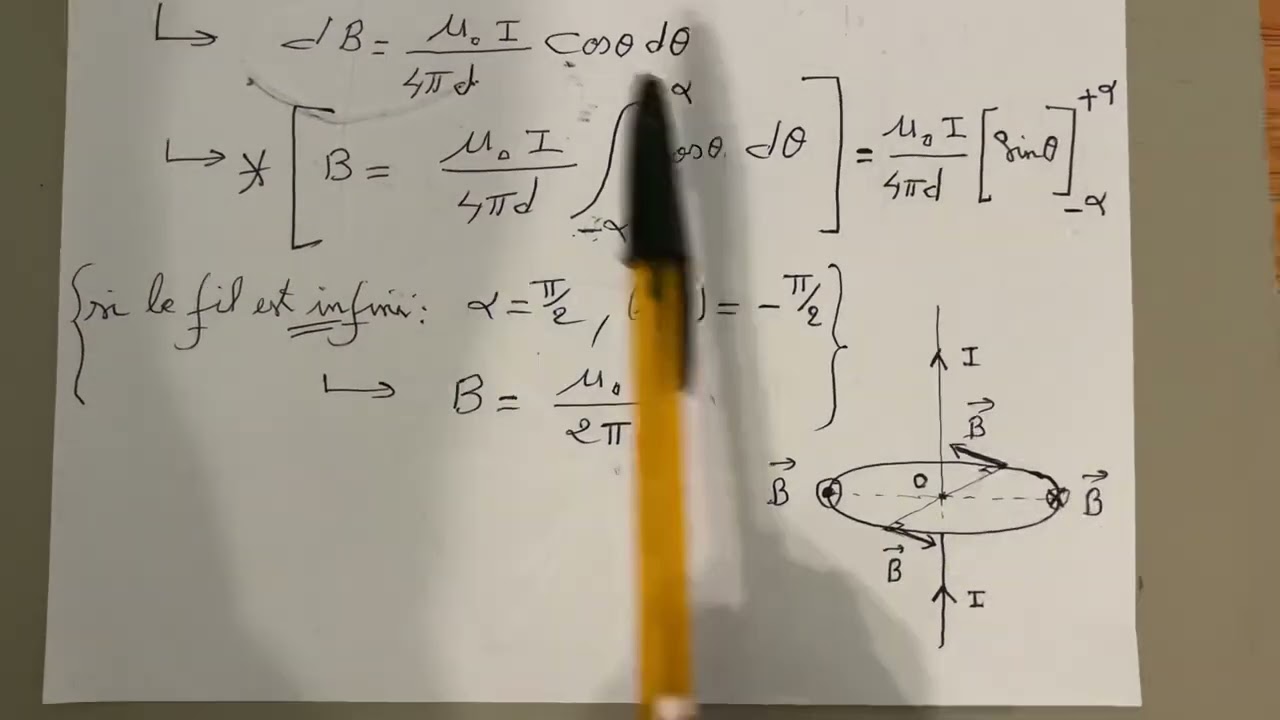 ↳ dB = μ₀ I / 4πd cosθ dθ
↳ * [ B = μ₀ I / 4πd ∫_{-α}^{α} cosθ dθ ] = μ₀ I / 4πd [sinθ]_{-α}^{+α}
{ si le fil est infini : α = π/2 , ( ) = - π/2 }
↳ B = μ₀ / 2π
I
B⃗
B⃗ O B⃗
B⃗
I